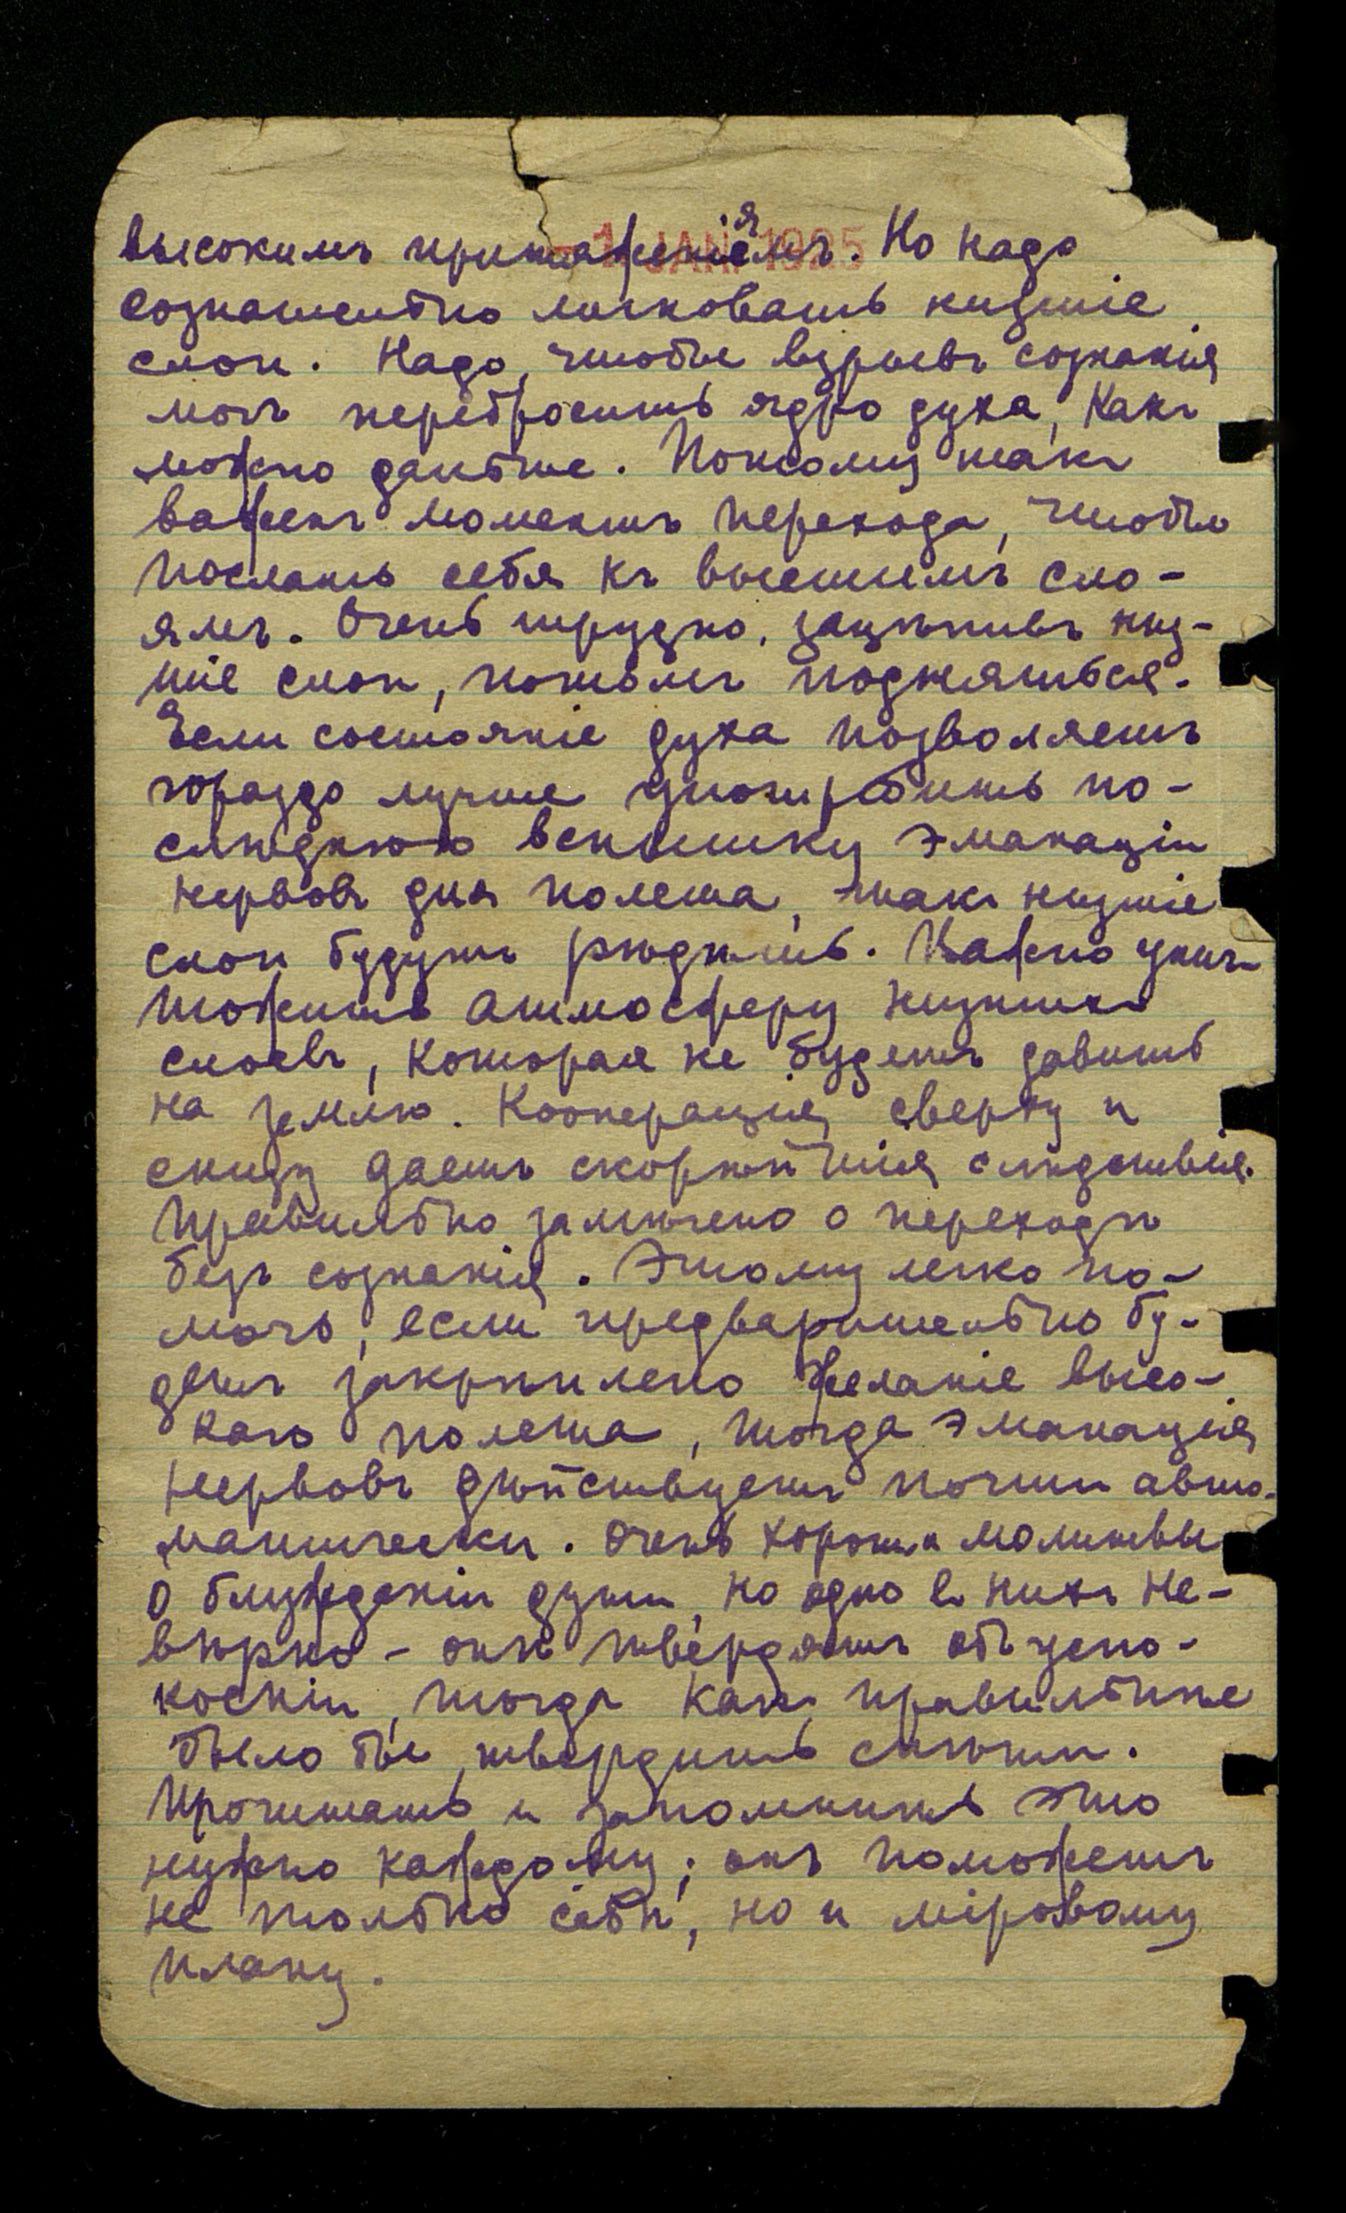 высокимъ притяженіямъ. Но надо
1 JAN 1925
сознательно миновать низшіе
слои. Надо, чтобы взрывъ сознанія
могъ перебросить ядро духа, какъ
можно дальше. Потому такъ
важенъ моментъ перехода, чтобы
послать себя къ высшимъ сло-
ямъ. Очень трудно, зацѣпивъ низ-
шіе слои, потомъ подняться.
Если состояніе духа позволяетъ
гораздо лучше употребить по-
слѣднюю вспышку эманаціи
нервовъ для полета, такъ низшіе
слои будутъ рѣдѣть. Важно унич-
тожить атмосферу низшихъ
слоевъ, которая не будетъ давить
на землю. Кооперація сверху и
снизу даетъ скорѣйшія слѣдствія.
Правильно замѣчено о переходѣ
безъ сознанія. Этому легко по-
мочь, если предварительно бу-
детъ закрѣплено желаніе высо-
каго полета, тогда эманація
нервовъ дѣйствуетъ почти авто-
матически. Очень хороши молитвы
о блужденіи души, но одно в нихъ не-
вѣрно - онѣ твердятъ объ успо-
коеніи, тогда какъ правильнѣе
было бы твердить спѣши.
Прочитать и запомнить это
нужно каждому; онъ поможетъ
не только себѣ, но и міровому
плану.